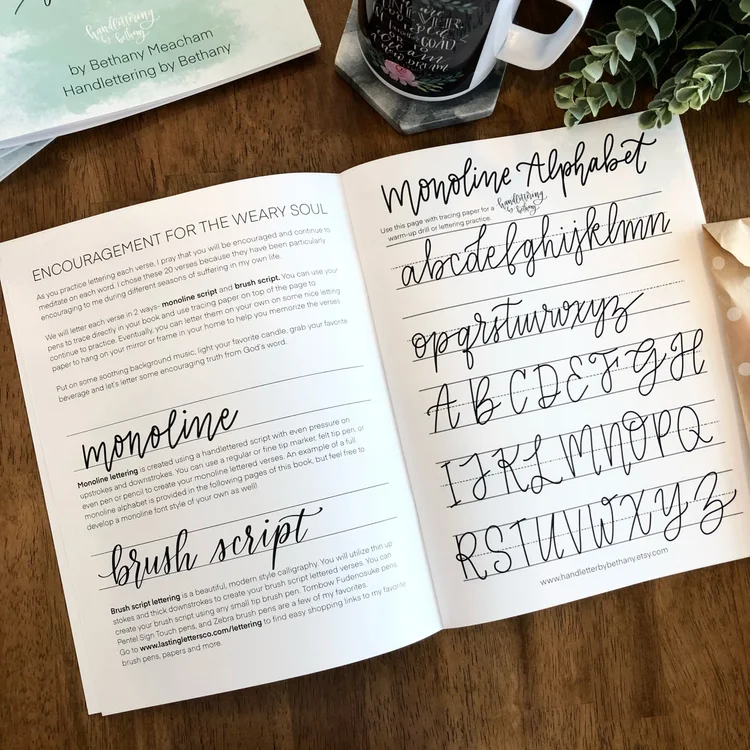 handlettering
by bethany
by Bethany Meacham
Handlettering by Bethany
ENCOURAGEMENT FOR THE WEARY SOUL
As you practice lettering each verse, I pray that you will be encouraged and continue to
meditate on each word. I chose these 20 verses because they have been particularly
encouraging to me during different seasons of suffering in my own life.
We will letter each verse in 2 ways- monoline script and brush script. You can use your
pens to trace directly in your book and use tracing paper on top of the page to
continue to practice. Eventually, you can letter them on your own on some nice letting
paper to hang on your mirror or frame in your home to help you memorize the verses
Put on some soothing background music, light your favorite candle, grab your favorite
beverage and let's letter some encouraging truth from God's word.
monoline
Monoline lettering is created using a handlettered script with even pressure on
upstrokes and downstrokes. You can use a regular or fine tip marker, felt tip pen, or
even pen or pencil to create your monoline lettered verses. An example of a full
monoline alphabet is provided in the following pages of this book, but feel free to
develop a monoline font style of your own as well!
brush script
Brush script lettering is a beautiful, modern style calligraphy. You will utilize thin up
stokes and thick downstrokes to create your brush script lettered verses. You can
create your brush script using any small tip brush pen. Tombow Fudenosuke pens,
Pentel Sign Touch pens, and Zebra brush pens are a few of my favorites.
Go to www.lastinglettersco.com/lettering to find easy shopping links to my favorite
brush pens, papers and more.
Monoline Alphabet
Use this page with tracing paper for a
warm-up drill or lettering practice.
handlettering
by bethany
abcdefghijklmn
opqrstuvwxyz
A B C D E F G H
I J K L M N O P Q
R S T U V W X Y Z
www.handletterbybethany.etsy.com